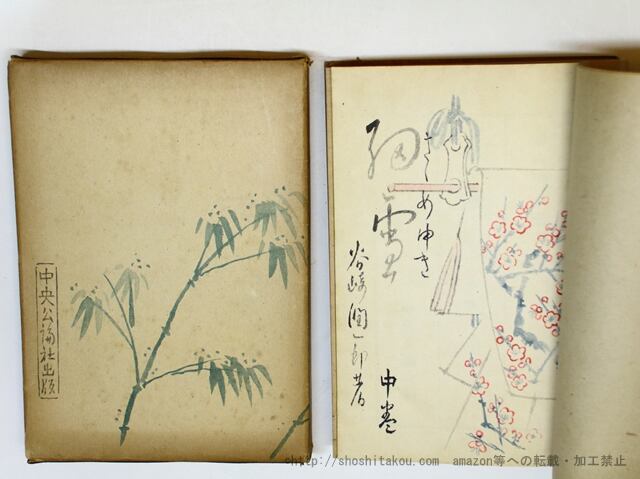 中央公論社出版
細雪
さゝめゆき
谷崎潤一郎著
中巻
<http://shoshitakou.com amazon等への転載・加工禁止